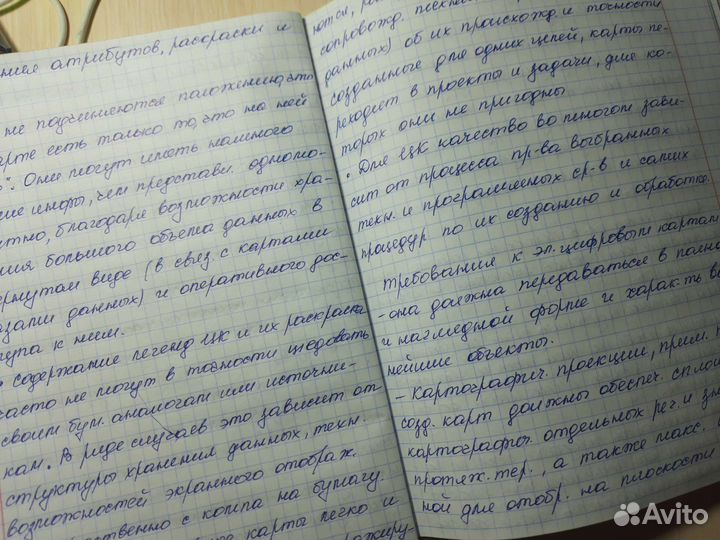 ния атрибутов, раскраски и
не подчиняются положению, что
арте есть только то, что на ней
". Они могут иметь намного
ше инфы, чем представи. одномо-
нтно, благодаря возможности хра-
ния большого объема данных в
ернутом виде (в связ. с картами
базами данных) и оперативного дос-
тупа к ним.
содержание легенд ЦК и их раскраска
часто не могут в точности следовать
своим бум. аналогам или источни-
кам. В ряде случаев это зависит от
структуры хранения данных, техн.
возможностей экранного отображ.
ственно с компа на бумагу.
карты легко и
сопровожд.
данных) об их происхожд и точности
созданные для одних целей, карты пе-
реходят в проекты и задачи, для ко-
торых они не пригодны
• Для ЦК качество во многом зави-
сит от процесса пр-ва выбранных
техн. и программных ср-в и самих
процедур по их созданию и обработке.
требования к эл. цифровым картам
- она должна передаваться в полно
и наглядной форме и харак-ть в
нейшие объекты.
- Картографич. проекции, прим.
созд. карт должны обеспеч. сплош
картографич. отдельных рег. и зн
протяж. тер., а также макс.
ной для отобр. на плоскости
Avito